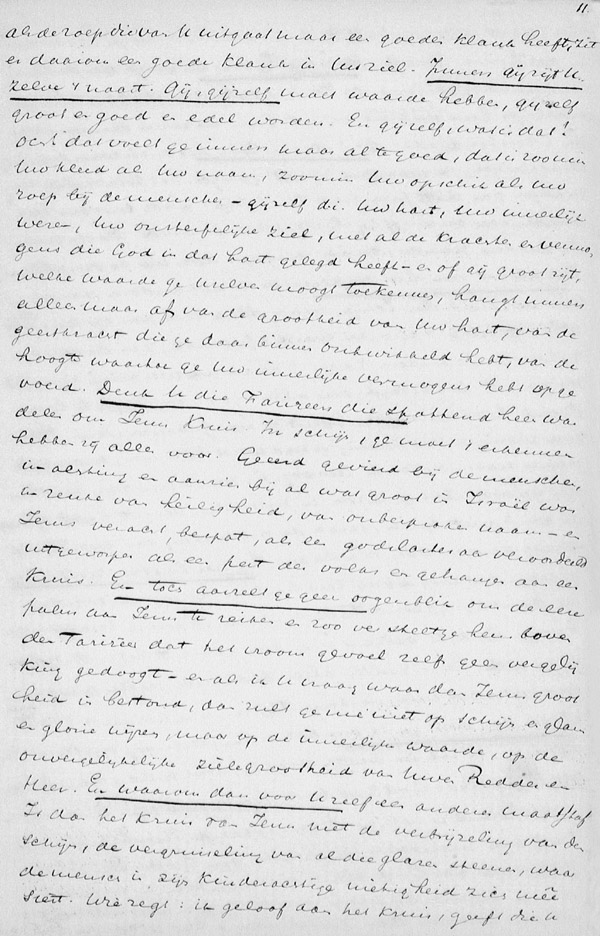 11.
als de roep die van U uitgaat maar een goeden klank heeft, zit
er daarom een goede klank in Uw ziel. Immers gij zijt U
zelve 't naast. Gij, gijzelf moet waarde hebben, gijzelf
groot en goed en edel worden. En gijzelf, wat is dat!
Och! dat voelt ge immers maar al te goed, dat is zoomin
Uw kleed als Uw naam, zoomin Uw opschik als Uw
roep bij de menschen - gijzelf d.i. Uw hart, Uw innerlijk
wezen, Uw onsterfelijke ziel, met al de krachten en vermo-
gens die God in dat hart gelegd heeft - en of gij groot zijt,
welke waarde ge Uzelven moogt toekennen, hangt immers
alleen maar af van de grootheid van Uw hart, van de
geestkracht die ge daar binnen ontwikkeld hebt, van de
hoogte waartoe ge Uw innerlijke vermogens hebt opge
voerd. Denk U die Farizeën die spottend heen wan
delen om Jezus Kruis. In schijn, ge moet 't erkennen
hebben zij alles voor. Geëerd gevierd bij de menschen,
in achting en aanzien bij al wat groot in Israël was
in reuke van heiligheid, van onbesproken naam - en
Jezus veracht, bespot, als een godslasteraar veroordeeld
uitgeworpen als een pest des volks en gehangen aan een
Kruis. En toch aarzelt ge geen oogenblik om de eere
palm aan Jezus te reiken en zoo ver steekt ge hem boven
den Farizeër dat het vroom gevoel zelfs geen vergelij
king gedoogt - en als ik U vraag waar dan Jezus groot
heid in bestond, dan zult ge me niet op schijn en glans
en glorie wijzen, maar op de innerlijke waarde, op de
onvergelijkelijke zielegrootheid van Uwen Redder en
Heer. En waarom dan voor Uzelf een anderen maatstaf
Is dan het Kruis van Jezus niet de verbrijzeling van den
schijn, de vergruizeling van al die glazen steenen, waar
de mensch in zijn kinderachtige nietigheid zich mêe
siert. Wie zegt: ik geloof aan het Kruis, geeft die U